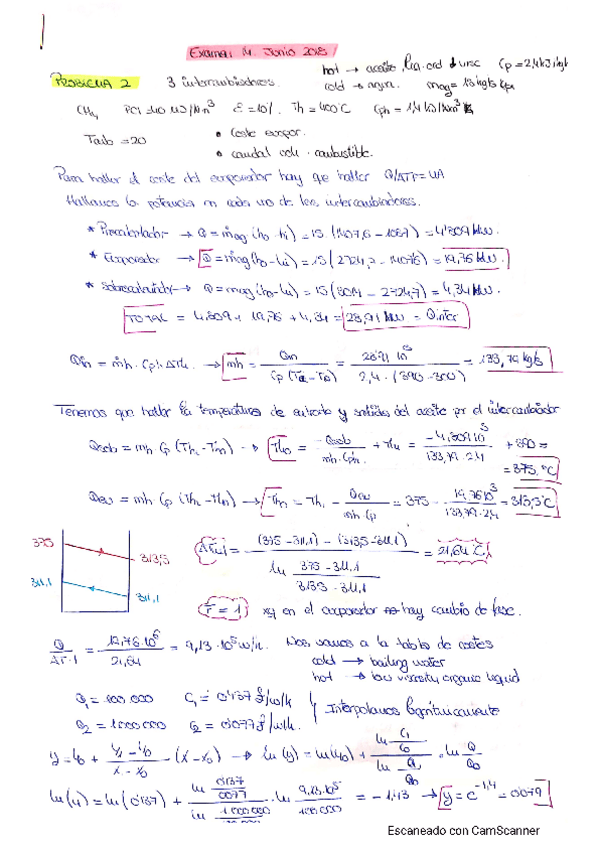 Examen 14 Junio 2018
PROBLEMA 2 3 intercambiadores. hot → aceite, liq. ord Cp = 2,4 kJ/kgK
cold → agua. mag = 15 kg/s
CH4 PCI = 40 MJ/Nm3 E = 10%. Th = 400°C Cph = 1,4 kJ/Nm3K
Tamb = 20 • Coste evapor.
• caudal combustible.
Para hallar el coste del evaporador hay que hallar Q/ΔTF = UA
Hallamos la potencia en cada uno de los intercambiadores.
* Precalentador → Q = mag (ho - hi) = 15 (1407,6 - 1087) = 4'809 MW.
* Evaporador → Q = mag (ho - hi) = 15 (2724,7 - 1407,6) = 19,76 MW.
* Sobrecalentador → Q = mag (ho - hi) = 15 (3014 - 2724,7) = 4,34 MW.
TOTAL = 4,809 + 19,76 + 4,34 = 28,91 MW = Qinter
Qin = mh · Cph ΔTh → mh = Qin / Cp (Ta - To) = 28'91 10^3 / 2,4 · (390 - 300) = 133,79 kg/s
Tenemos que hallar la temperatura de entrada y salida del aceite por el intercambiador
Qsob = mh Cp (Thi - Tho) → Tho = -Qsob / mh · Cph + Thi = -4,809 10^3 / 133,79 · 2,4 + 390 =
= 375 °C
Qev = mh Cp (Thi - Tho) → Tho = Thi - Qev / mh Cp = 375 - 19,76 10^3 / 133,79 · 2,4 = 313,5°C
375 313,5 311,1 311,1
ΔTml = (375 - 311,1) - (313,5 - 311,1) / ln 375 - 311,1 / 313,5 - 311,1 = 21,64°C
F = 1 xq en el evaporador hay cambio de fase.
Q / ΔT·1 = 19,76 · 10^6 / 21,64 = 9,13 · 10^5 W/K. Nos vamos a la tabla de costes
cold → boiling water
hot → low viscosity organic liquid
Q1 = 100.000 C1 = 0'137 £/W/K
Q2 = 1000000 C2 = 0'077 £/W/K. Interpolamos logarítmicamente
y = y0 + y1 - y0 / x1 - x0 (x - x0) → ln(y) = ln(y0) + ln C1/C0 / ln Q1/Q0 · ln Q/Q0
ln(y) = ln(0'137) + ln 0'137/0'077 / ln 100000/1.000.000 · ln 9,13·10^5/100.000 = -1,43 → y = e^-1,4 = 0'079
Escaneado con CamScanner